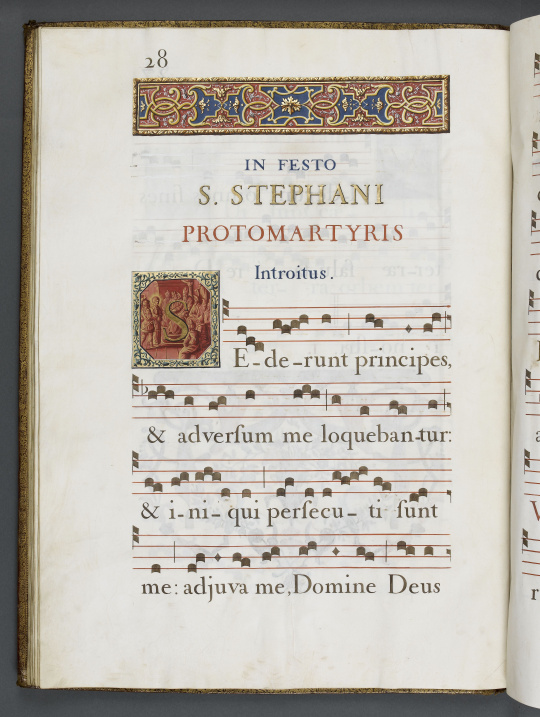 28
IN FESTO
S. STEPHANI
PROTOMARTYRIS
Introitus.
SE-de-runt principes,
& adverſum me loqueban-tur:
& i-ni-qui perſecu-ti ſunt
me: adjuva me, Domine Deus